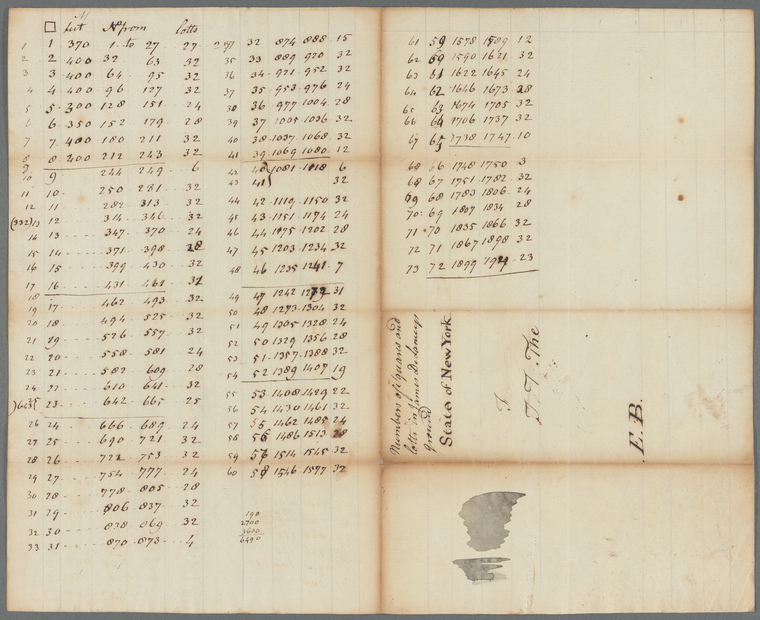 □ feet No from lotts
1 1 370 1 to 27 27
2 2 400 32 63 32
3 3 400 64 95 32
4 4 400 96 127 32
5 5 300 128 151 24
6 6 350 152 179 28
7 7 400 180 211 32
8 8 400 212 243 32
9 9 244 249 6
11 10 250 281 32
12 11 282 313 32
(332) 13 12 314 346 32
14 13 347 370 24
15 14 371 398 28
16 15 399 430 32
17 16 431 461 31
19 17 462 493 32
20 18 494 525 32
21 19 526 557 32
22 20 558 581 24
23 21 582 609 28
24 22 610 641 32
23 642 665 25
26 24 666 689 24
27 25 690 721 32
28 26 722 753 32
29 27 754 777 24
30 28 778 805 28
31 29 806 837 32
32 30 838 869 32
33 31 870 873 4
32 874 888 15
35 33 889 920 32
36 34 921 952 32
37 35 953 976 24
36 977 1004 28
39 37 1005 1036 32
40 38 1037 1068 32
41 39 1069 1080 12
43 40 1081 1118 6
43 41 32
44 42 1119 1150 32
45 43 1151 1174 24
46 44 1175 1202 28
47 45 1203 1234 32
48 46 1235 1241 7
49 47 1242 1272 31
50 48 1273 1304 32
51 49 1305 1328 24
52 50 1329 1356 28
53 51 1357 1388 32
54 52 1389 1407 19
55 53 1408 1429 22
56 54 1430 1461 32
57 55 1462 1485 24
58 56 1486 1513 28
59 57 1514 1545 32
60 58 1546 1577 32
190
2700
3600
6490
61 59 1578 1589 12
62 60 1590 1621 32
63 61 1622 1645 24
64 62 1646 1673 28
65 63 1674 1705 32
66 64 1706 1737 32
67 65 1738 1747 10
68 66 1748 1750 3
68 67 1751 1782 32
69 68 1783 1806 24
70 69 1807 1834 28
71 70 1835 1866 32
72 71 1867 1898 32
73 72 1899 1921 23
Numbers of Squares and
lotts in James DeLanceys
ground
State of New York
T
T. T. The
E.B.